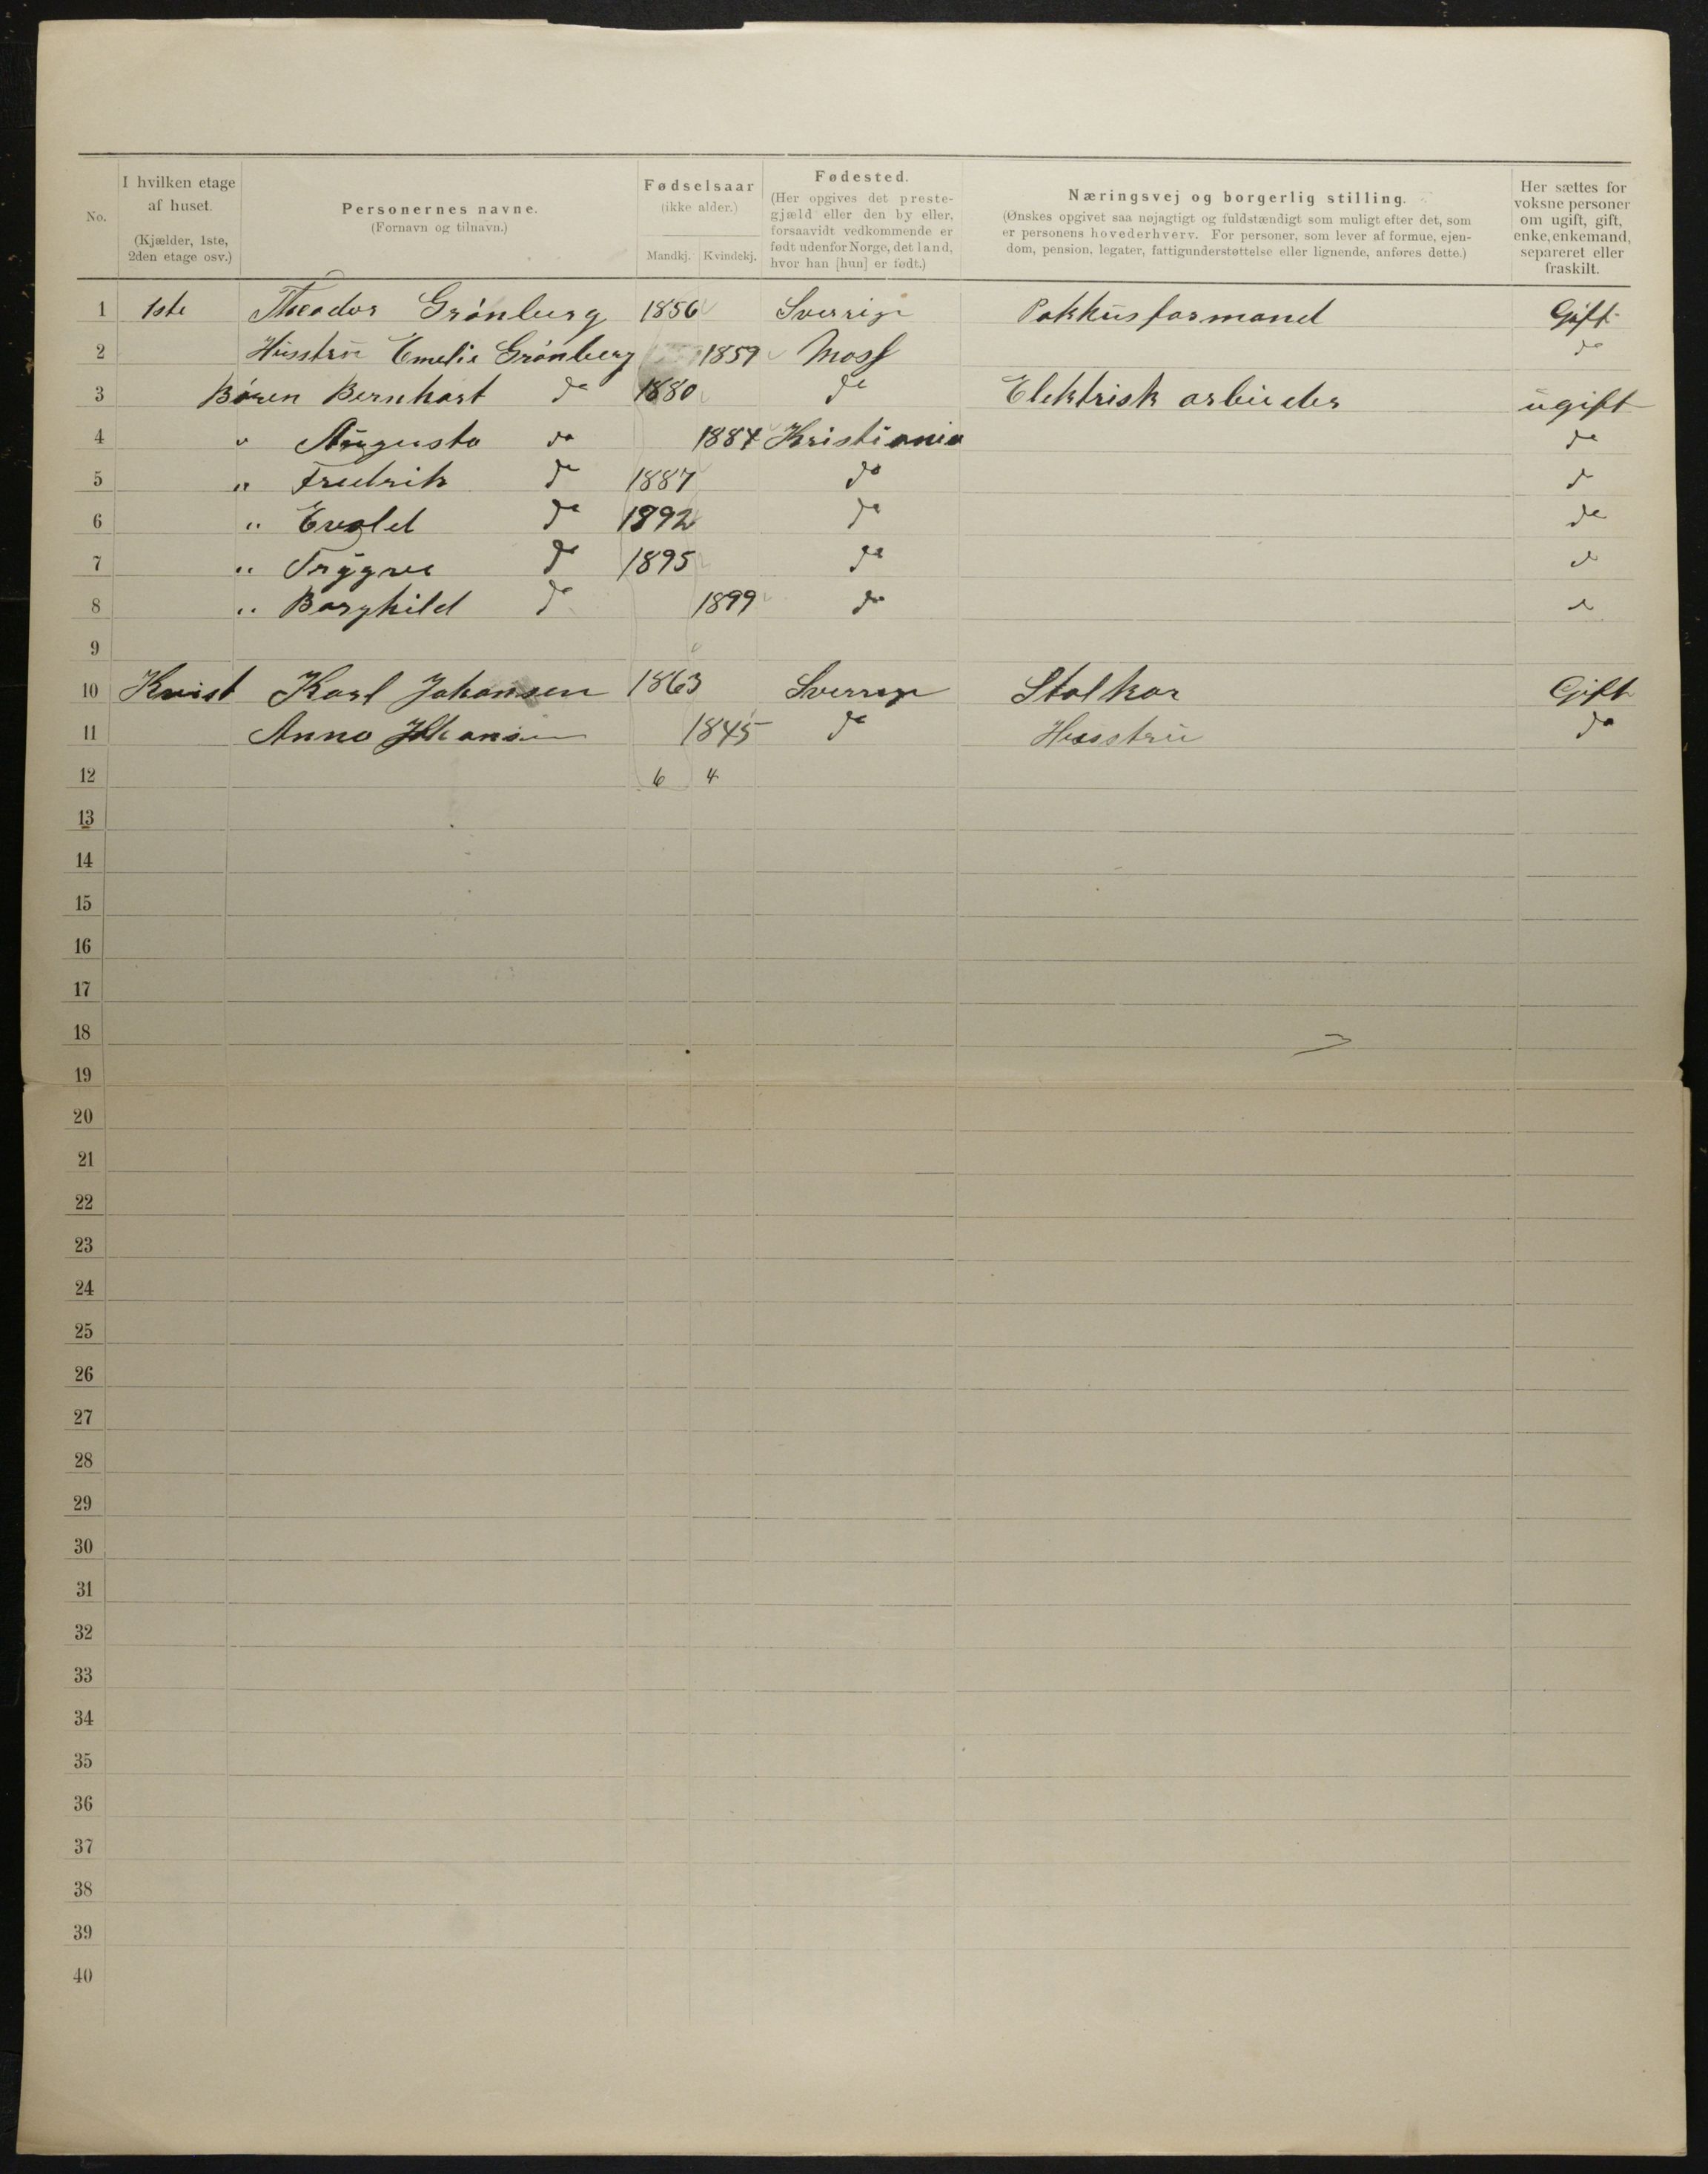 No.
I hvilken etage af huset.
(Kjælder, 1ste, 2den etage osv.)
Personernes navne.
(Fornavn og tilnavn.)
Fødselsaar
(ikke alder.)
Mandkj. Kvindekj.
Fødested.
(Her opgives det preste-
gjæld eller den by eller,
forsaavidt vedkommende er
født udenfor Norge, det land,
hvor han [hun] er født.)
Næringsvej og borgerlig stilling.
(Ønskes opgivet saa nøjagtigt og fuldstændigt som muligt efter det, som
er personens hovederhverv. For personer, som lever af formue, ejen-
dom, pension, legater, fattigunderstøttelse eller lignende, anføres dette.)
Her sættes for
voksne personer
om ugift, gift,
enke, enkemand,
separeret eller
fraskilt.
1 1ste Theodor Grönberg 1856 Sverrige Pakhusformand Gift
2 Husstru Emelie Grönberg 1859 Moss do
3 Børen Bernhart do 1880 do Elektrisk arbeider ugift
4 " Augusta do 1884 Kristiania do
5 " Fredrik do 1887 do do
6 " Evald do 1892 do do
7 " Trygve do 1895 do do
8 " Borghild do 1899 do do
9
10 Kvist Karl Johansen 1863 Sverrige Stalkar Gift
11 Anna Johansen 1845 do Husstru do
12 6 4
13
14
15
16
17
18
19
20
21
22
23
24
25
26
27
28
29
30
31
32
33
34
35
36
37
38
39
40